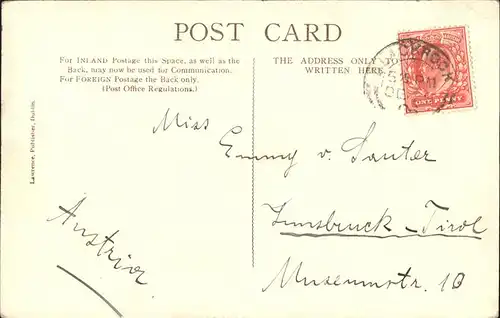 POST CARD
For INLAND Postage this Space, as well as the
Back, may now be used for Communication.
For FOREIGN Postage the Back only.
(Post Office Regulations.)
THE ADDRESS ONLY
WRITTEN HERE
ONE PENNY
Lawrence, Publisher, Dublin.
Miss
Emmy v. Sauter
Innsbruck - Tirol
Museumstr. 10
Austria